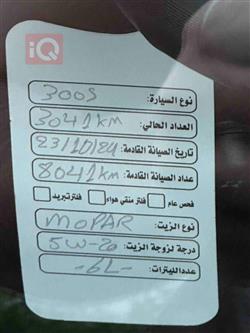 iQ
نوع السيارة: 300S
العداد الحالي: 3041KM
تاريخ الصيانة القادمة: 23/10/24
عداد الصيانة القادمة: 8041KM
فحص عام فلتر منقي هواء فلتر تبريد
نوع الزيت: MOPAR
درجة لزوجة الزيت: 5W-20
عدد اللترات: -6L-